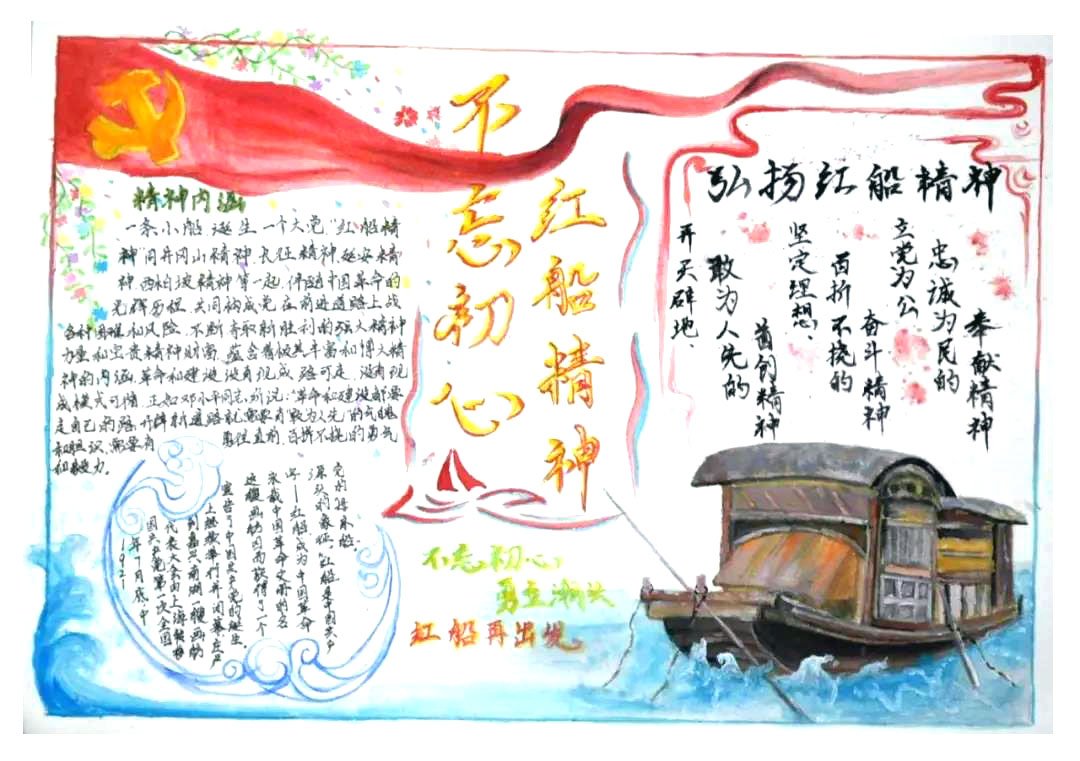 不忘初心
红船精神
精神内涵
一条小船,诞生一个大党。"红船精
神"同井冈山精神、长征精神、延安精
神、西柏坡精神等一起,伴随中国革命的
光辉历程,共同构成党在前进道路上战
各种困难和风险、不断夺取新胜利的强大精神
力量和宝贵精神财富,蕴含着极其丰富和博大精
神的内涵。革命和建设没有现成路可走,没有现
成模式可循。正如邓小平同志所说:"革命和建设都要
走自己的路。"开辟新道路就需要有"敢为人先"的气魄
和胆识,需要有 勇往直前、百折不挠的勇气
和毅力。
1921年7月底,中
国共产党第一次全国
代表大会由上海转移
到嘉兴南湖一艘画舫
上继续举行并闭幕,庄严
宣告了中国共产党的诞生。
这艘画舫因而获得了一个
永载中国革命史册的名
——红船,成为中国革命
源头的象征。"红船是中国共产
党的母亲船。
不忘初心
勇立潮头
红船再出发
弘扬红船精神
开天辟地、
敢为人先的
首创精神
坚定理想、
百折不挠的
奋斗精神
立党为公、
忠诚为民的
奉献精神